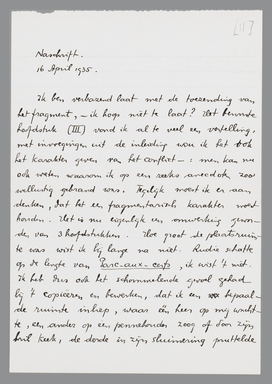 [11]
Naschrift.
16 April 1935.
Ik ben verbazend laat met de toezending van
het fragment, – ik hoop niet te laat? Het
hoofdstuk (III) vond ik al te veel een vertelling,
met invoegingen uit de inleiding wou ik het ook
het karakter geven van het conflict –: men kan nu
ook weten waarom ik op een reeks anecdotes zoo
wellustig gebrand was. Tegelijk moest ik er aan
denken, dat het een fragmentarisch karakter moest
houden. Het is nu eigenlijk een omwerking gewor-
den van 3 hoofdstukken. Hoe groot de plaatsruim-
te was wist ik bij lange na niet. Rudie schatte
op de lengte van Parc-aux-cerfs, ik wist 't niet.
Ik heb dus ook het schommelende gevoel gehad
bij 't copieeren en bewerken, dat ik een bepaal-
de ruimte inliep, waar één heer op mij wacht-
te, een ander op een pennehouder zoog of door zijn
bril keek, de derde in zijn sluimering pruttelde